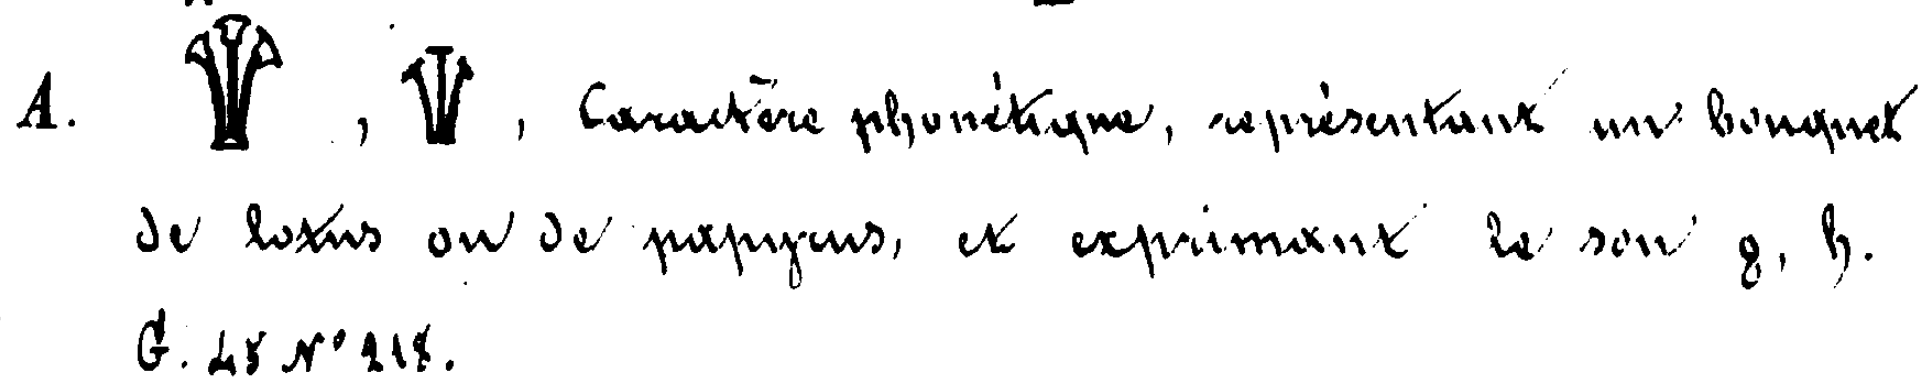 A. 𓇉, 𓇉, Caractère phonétique, représentant un bouquet
de lotus ou de papyrus, et exprimant le son ϩ, h.
G. 45 N° 218.